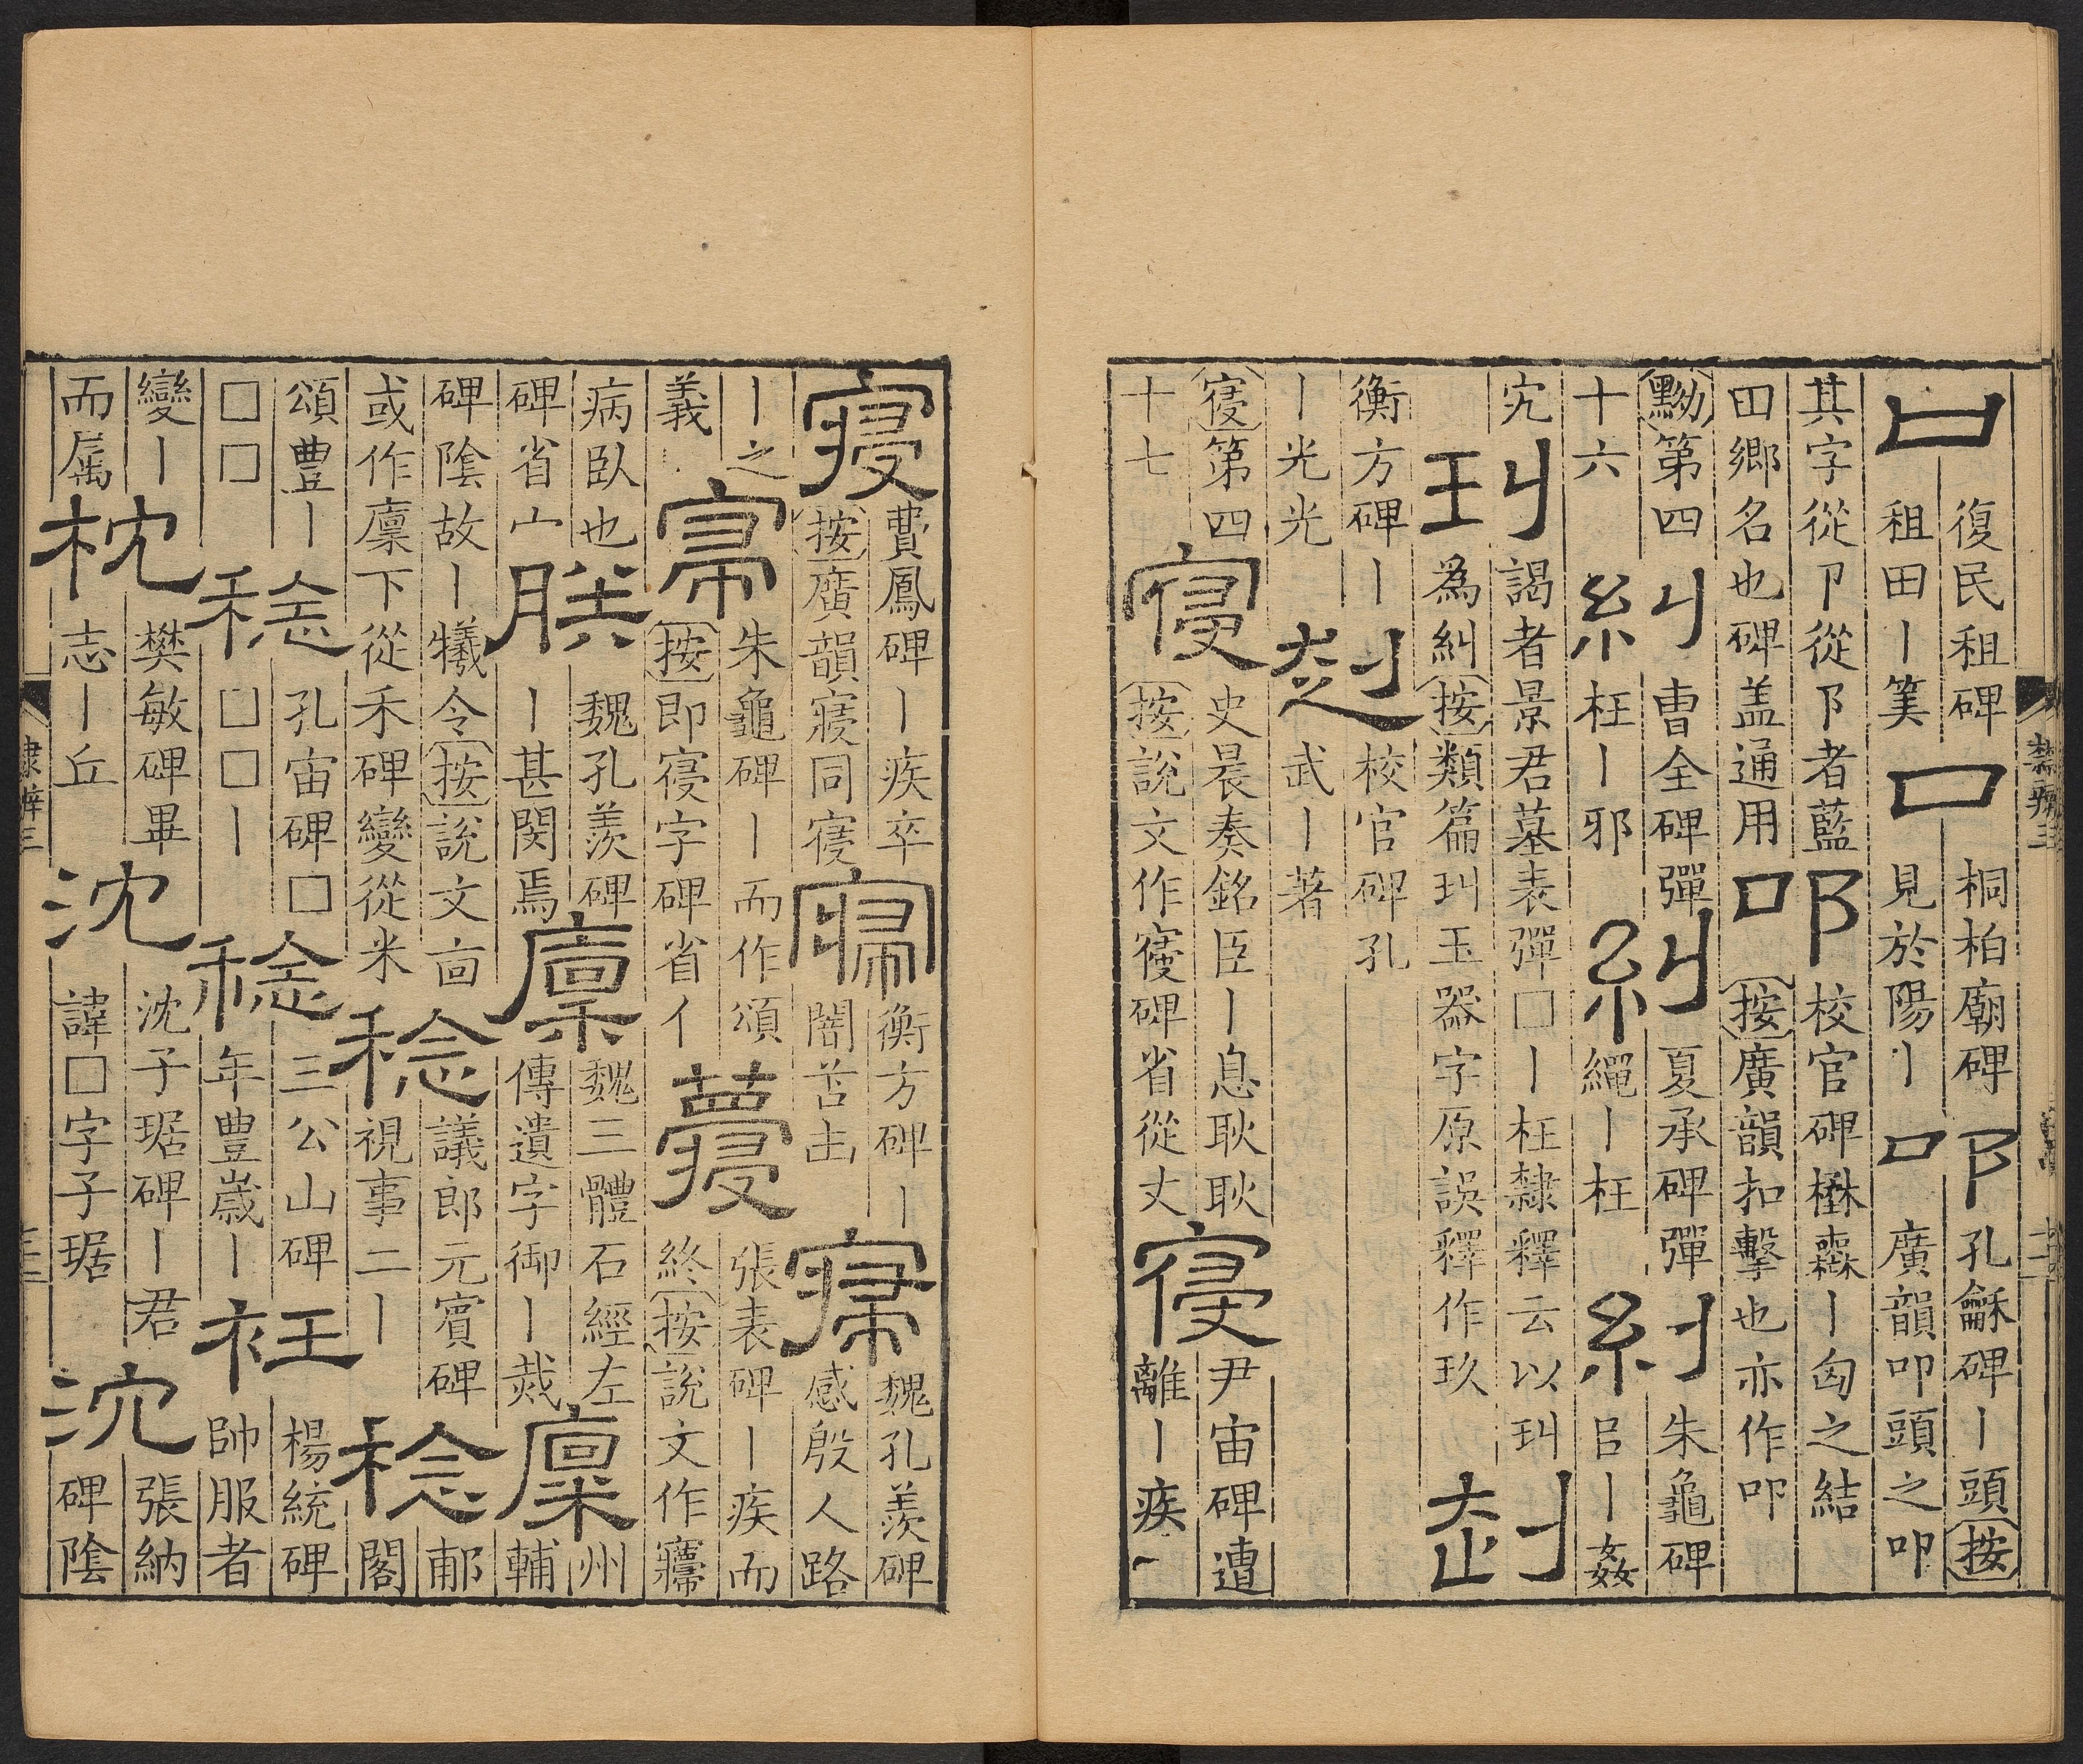 口復民租碑租田丨筭口桐柏廟碑見於陽丨叩孔龢碑丨頭按廣韻叩頭之叩
其字從卩從阝者藍田鄉名也碑盖通用叩校官碑楙森丨匈之結按廣韻扣擊也亦作叩
黝第四十六糾曹全碑彈枉丨邪糾夏承碑彈繩丨枉糾朱龜碑㠯丨姦
宄玑謁者景君墓表彈□丨枉隸釋云以玑為糾按類篇玑玉器字原誤釋作玖赳
衡方碑丨丨光光赳校官碑孔武丨著
寑第四十七寑史晨奏銘臣丨息耿耿按說文作寑碑省從丈寑尹宙碑遭離丨疾
寢費鳳碑丨疾卒按廣韻寢同寑寢衡方碑丨闇苫凷寢魏孔羨碑感殷人路
丨之義朱龜碑丨而作頌按即寑字碑省亻張表碑丨疾而終按說文作
病臥也碑省宀朕魏孔羨碑丨甚閔焉廩魏三體石經左傳遺字御丨烖廩州輔
碑陰故丨犧令按說文㐭或作廩下從禾碑變從米稔議郎元賓碑視事二丨稔郙閣
頌豊丨□□稔孔宙碑□□□丨稔三公山碑年豊歲丨衽楊統碑帥服者
變丨而属枕樊敏碑畢志丨丘沈沈子琚碑丨君諱□字子琚沈張納碑陰
隸辨三